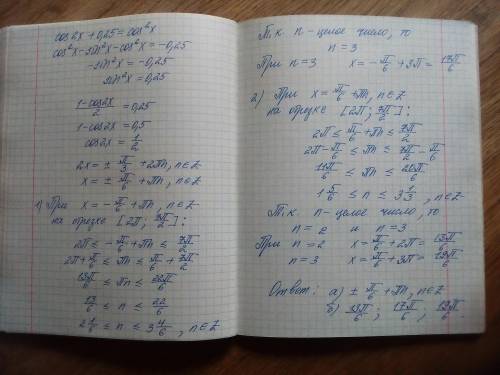 cos2x + 0,25 = cos²x
cos²x - sin²x - cos²x = -0,25
-sin²x = -0,25
sin²x = 0,25
(1-cos2x)/2 = 0,25
1-cos2x = 0,5
cos2x = 1/2
2x = ± π/3 + 2πn, n∈Z
x = ± π/6 + πn, n∈Z
1) При x = -π/6 + πn, n∈Z
на отрезке [2π; 7π/2]:
2π ≤ -π/6 + πn ≤ 7π/2
2π + π/6 ≤ πn ≤ π/6 + 7π/2
13π/6 ≤ πn ≤ 22π/6
13/6 ≤ n ≤ 22/6
2 1/6 ≤ n ≤ 3 4/6, n∈Z
Т.к. n - целое число, то
n = 3
При n = 3 x = -π/6 + 3π = 17π/6
2) При x = π/6 + πn, n∈Z
на отрезке [2π; 7π/2]:
2π ≤ π/6 + πn ≤ 7π/2
2π - π/6 ≤ πn ≤ 7π/2 - π/6
11π/6 ≤ πn ≤ 20π/6
1 5/6 ≤ n ≤ 3 1/3, n∈Z
Т.к. n - целое число, то
n = 2 и n = 3
При n = 2 x = π/6 + 2π = 13π/6
n = 3 x = π/6 + 3π = 19π/6
Ответ: а) ± π/6 + πn, n∈Z
б) 13π/6; 17π/6; 19π/6